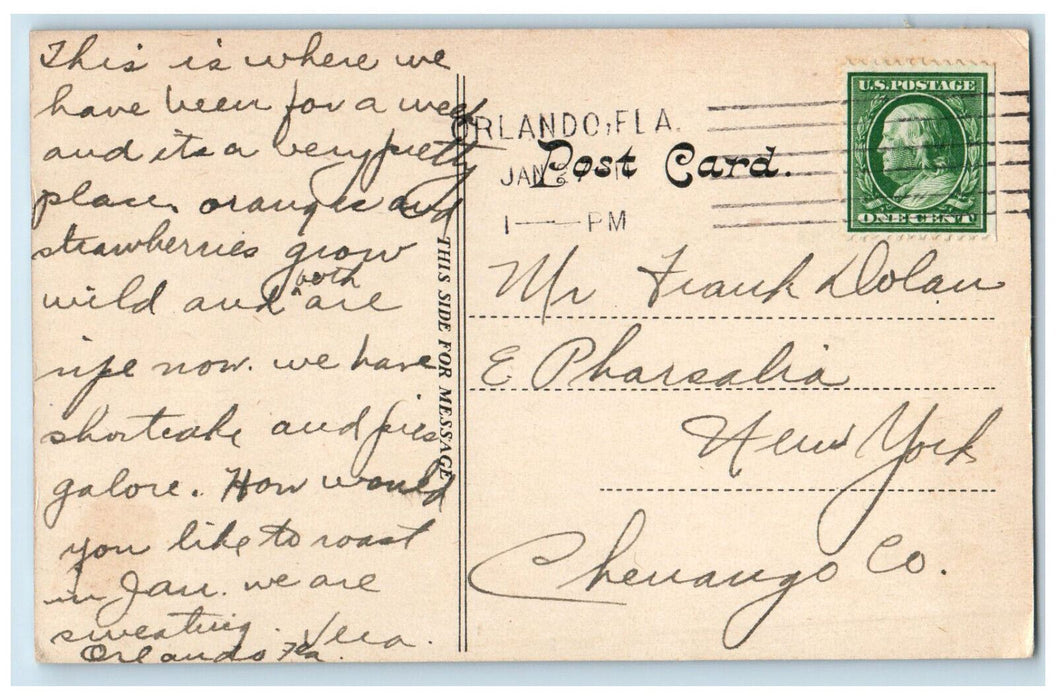 This is where we
have been for a week
and its a very pretty
place. oranges and
strawberries grow
both
wild and ^ are
ripe now. we have
shortcake and pies
galore. How would
you like to roast
in Jan. we are
sweating. Vera.
Orlando Fla.
THIS SIDE FOR MESSAGE
ORLANDO, FLA.
JAN
1 PM
Post Card.
U.S. POSTAGE
ONE CENT
Mr Frank Dolan
E Pharsalia
New York
Chenango Co.